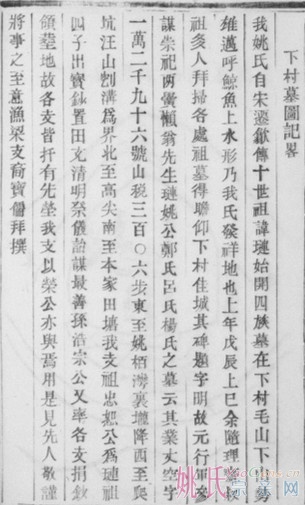 下村墓圖記畧
我姚氏自宋遷歙傳十世祖諱璉始開四族墓在下村毛山下
雉過呼鯨魚上水形乃我氏發祥地也上年戊辰上巳余隨理
祖多人拜掃各處祖墓得瞻仰下村佳城其碑題字明故元行軍參
謀崇祀兩黌順翁先生璉姚公鄭氏呂氏楊氏之墓云其業丈空字
一萬二千九十六號山稅三百〇六步東至姚栢灣裏壠降西至
坑汪山㓰溝爲界北至高尖南至本家田塝我支祖忠恕公爲璉祖
四子出寶鈔置田以清明祭儀詒謀最善孫浩宗公又率各支捐
領塋地故各支皆祔有先塋我支以榮公亦與焉用是見先人敬謹
將事之至意漁梁支裔寶
拜撰
姚氏
宗亲网